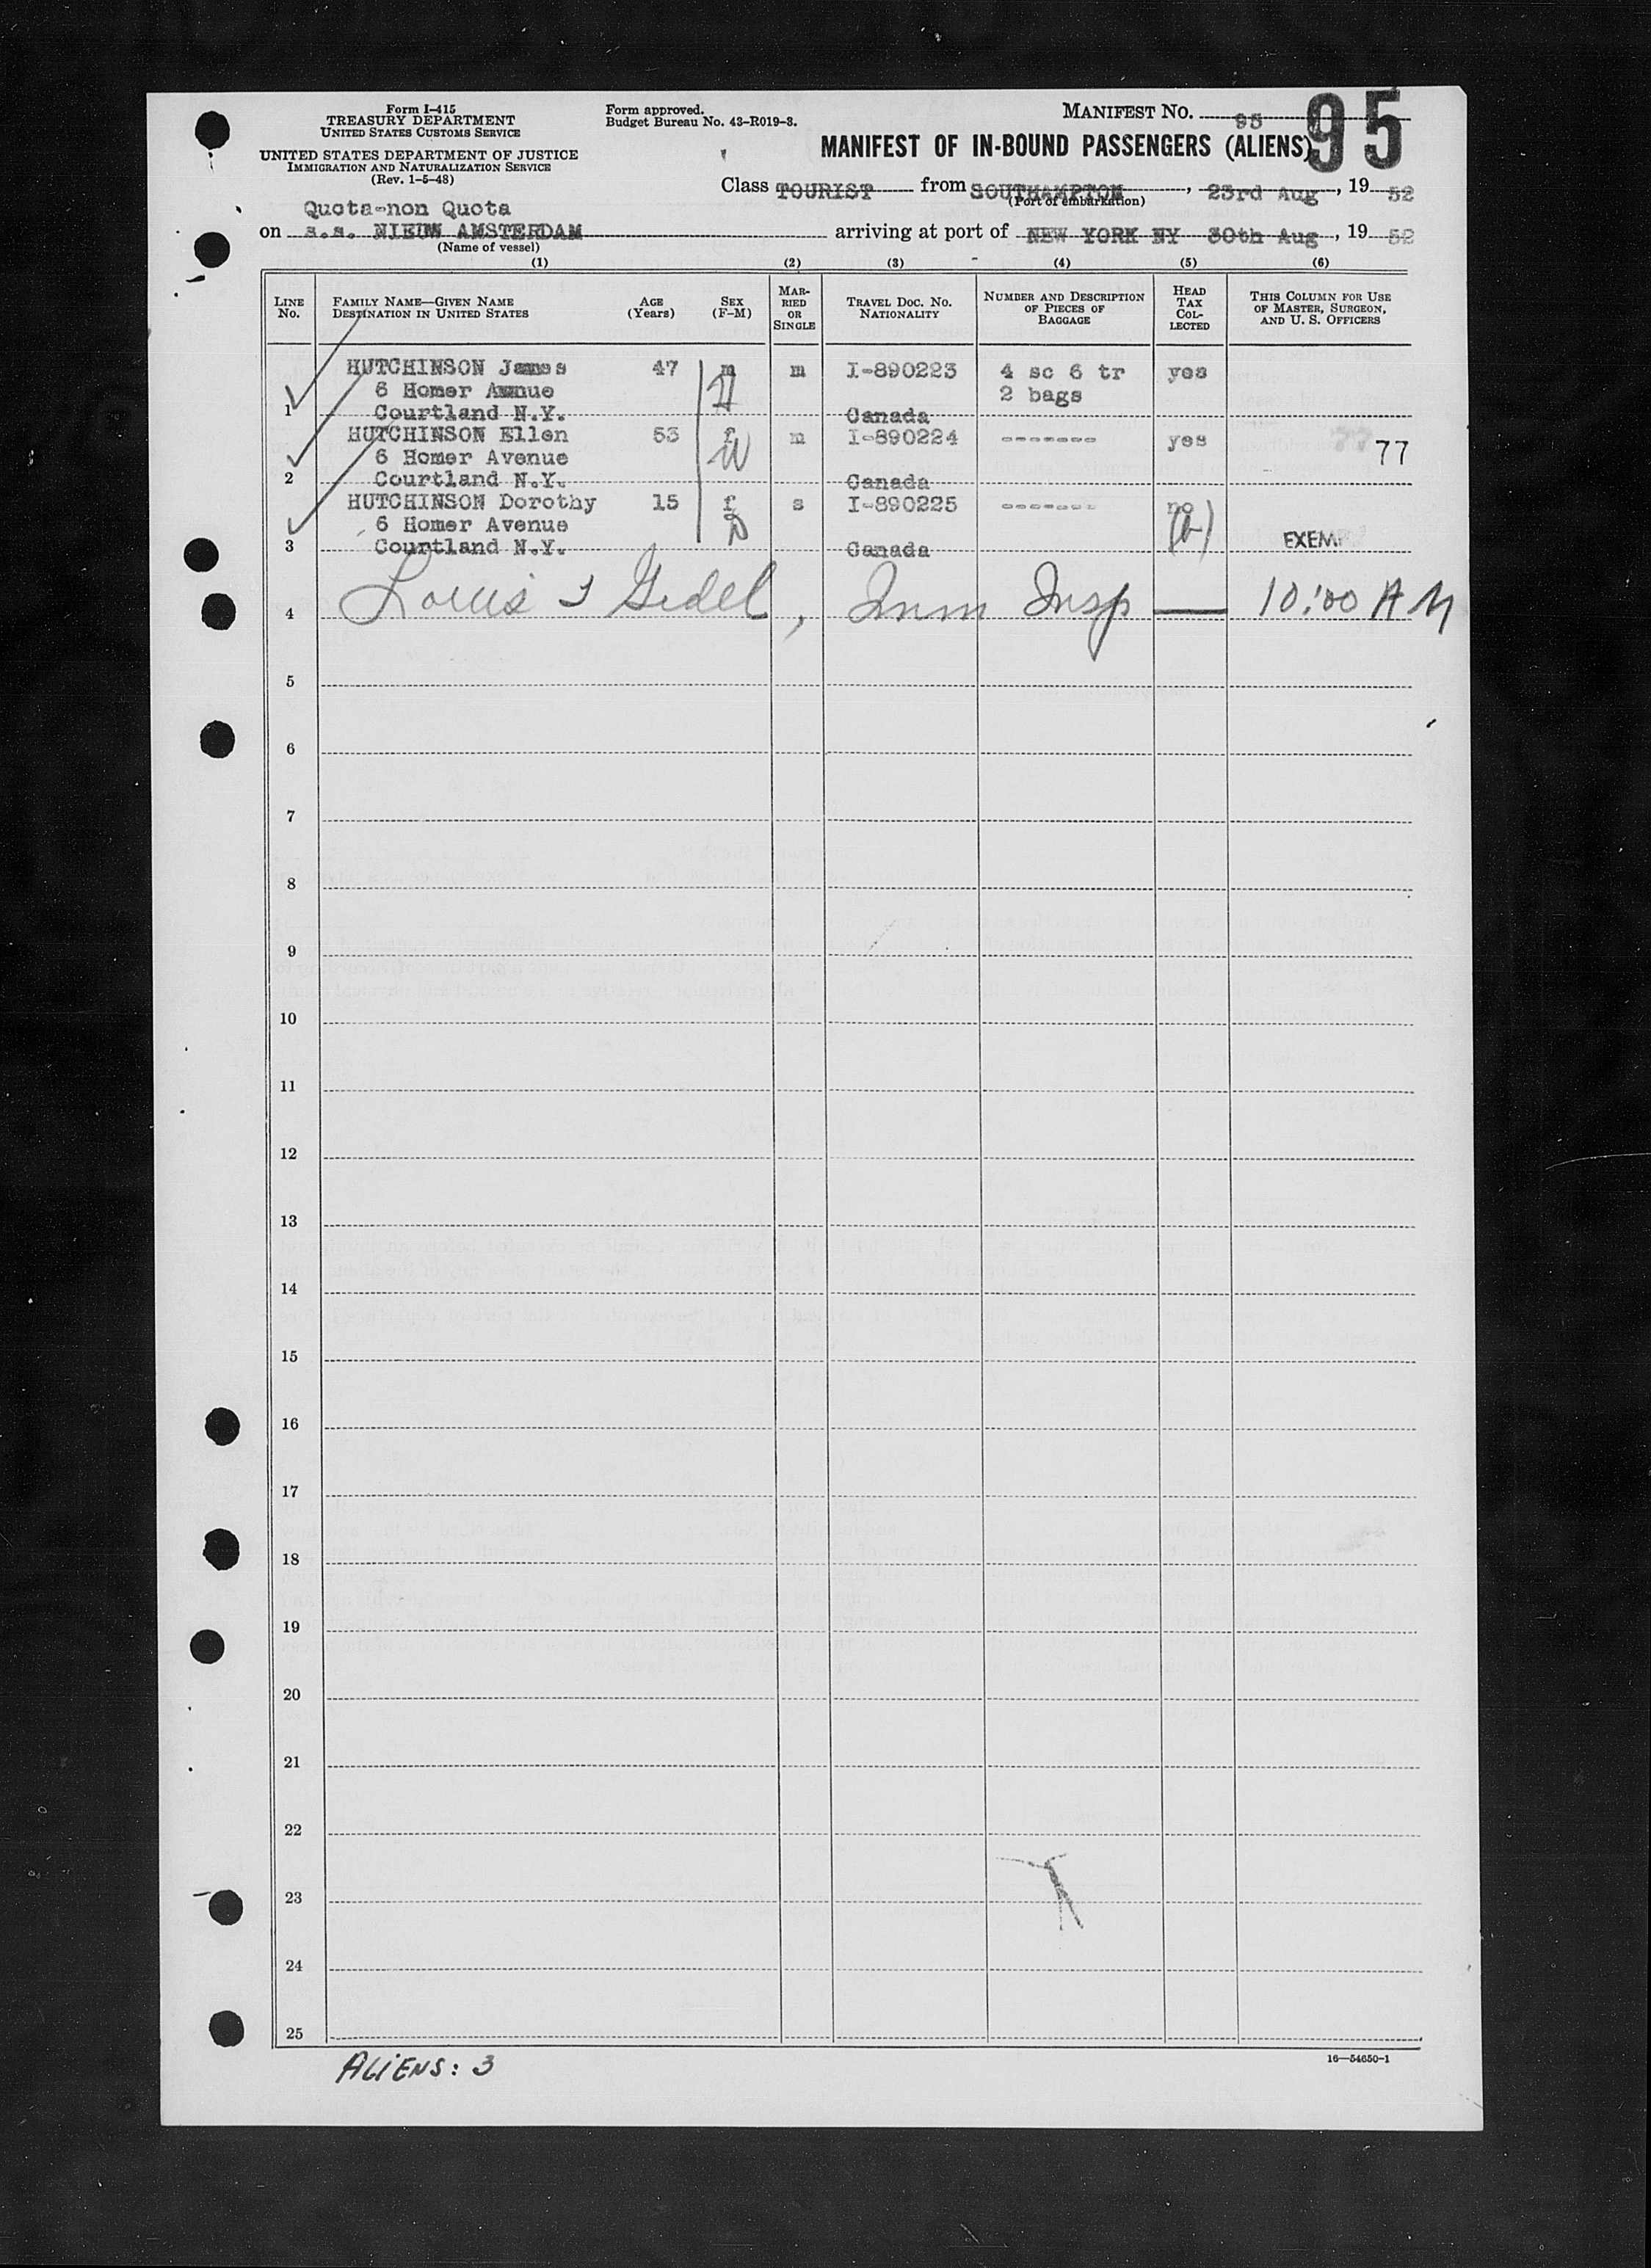 Form I-415
TREASURY DEPARTMENT
UNITED STATES CUSTOMS SERVICE
UNITED STATES DEPARTMENT OF JUSTICE
IMMIGRATION AND NATURALIZATION SERVICE
(Rev. 1-5-48)
Form approved.
Budget Bureau No. 43-R019-3.
MANIFEST NO. 95
95
MANIFEST OF IN-BOUND PASSENGERS (ALIENS)
Class TOURIST from SOUTHAMPTON, 23rd Aug, 1952
(Port of embarkation)
Quota-non Quota
on s.s. NIEUW AMSTERDAM arriving at port of NEW YORK NY 30th Aug, 1952
(Name of vessel)
(1) (2) (3) (4) (5) (6)
LINE No. FAMILY NAME—GIVEN NAME DESTINATION IN UNITED STATES AGE (Years) SEX (F-M) MARRIED OR SINGLE TRAVEL DOC. No. NATIONALITY NUMBER AND DESCRIPTION OF PIECES OF BAGGAGE HEAD TAX COLLECTED THIS COLUMN FOR USE OF MASTER, SURGEON, AND U. S. OFFICERS
HUTCHINSON James 47 m m I-890223 4 sc 6 tr yes
6 Homer Avenue H 2 bags
1 Courtland N.Y. Canada
HUTCHINSON Ellen 53 f m I-890224 ------- yes 77
6 Homer Avenue W
2 Courtland N.Y. Canada
HUTCHINSON Dorothy 15 f s I-890225 ------- no
6 Homer Avenue D
3 Courtland N.Y. Canada EXEMP
4 Louis Gidel, Imm Insp — 10:00 AM
5
6
7
8
9
10
11
12
13
14
15
16
17
18
19
20
21
22
23
24
25
ALIENS: 3
16—54650-1